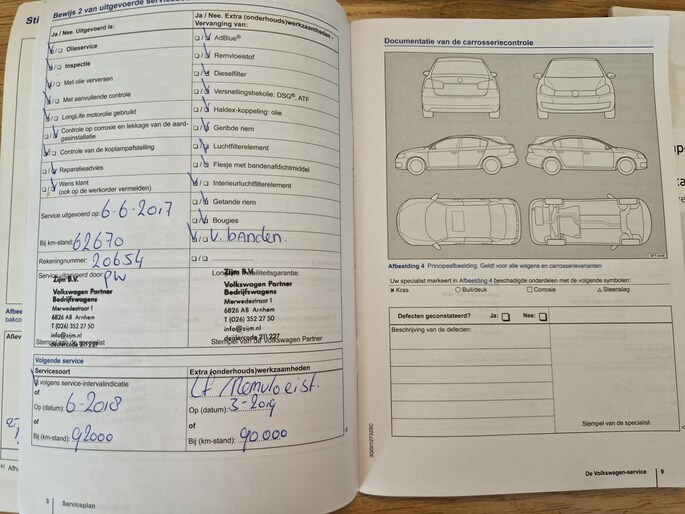 Sti
Bewijs 2 van uitgevoerde
Ja / Nee. Uitgevoerd is:
Olieservice
Inspectie
Met olie verversen
Met aanvullende controle
LongLife motorolie gebruikt
Controle op corrosie en lekkage van de aard-
gasinstallatie
Controle van de koplampafstelling
Reparatieadvies
Wens klant
(ook op de werkorder vermelden)
Service uitgevoerd op: 6-6-2017
Bij km-stand: 62670
Rekeningnummer: 20654
Service uitgevoerd door: PW
Zijm B.V.
Volkswagen Partner
Bedrijfswagens
Merwedestraat 1
6826 AB Arnhem
T (026) 352 27 50
info@zijm.nl
dealercode 211 227
Stempel van de specialist
Ja / Nee. Extra (onderhouds)werkzaamheden -
Vervanging van:
AdBlue®
Remvloeistof
Dieselfilter
Versnellingsbakolie: DSG®, ATF
Haldex-koppeling: olie
Geribde riem
Luchtfilterelement
Flesje met bandenafdichtmiddel
Interieurluchtfilterelement
Getande riem
Bougies
V. banden.
Zijm B.V.
Volkswagen Partner
Bedrijfswagens
Merwedestraat 1
6826 AB Arnhem
T (026) 352 27 50
info@zijm.nl
dealercode 211 227
Stempel van de Volkswagen Partner
Volgende service
Servicesoort
volgens service-intervalindicatie
of
Op (datum): 6-2018
of
Bij (km-stand): 92000
Extra (onderhouds)werkzaamheden
Op (datum): 3-2019
of
Bij (km-stand): 90.000
8 Serviceplan
Documentatie van de carrosseriecontrole
Afbeelding 4 Principeafbeelding. Geldt voor alle wagens en carrosserievarianten
Uw specialist markeert in Afbeelding 4 beschadigde onderdelen met de volgende symbolen:
× Kras ○ Buil/deuk □ Corrosie △ Steenslag
Defecten geconstateerd? Ja: Nee:
Beschrijving van de defecten:
Stempel van de specialist
3Q0012732SC
De Volkswagen-service 9